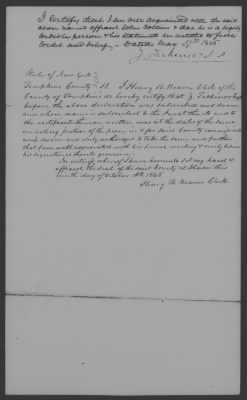 I certify that I am well acquainted with the said
above named affiant John Collins & that he is a highly
credible person & his statement is entitled to full
credit and belief. Dated May 27th 1845.
J. P.
State of New York
Tompkins County SS. I Henry B. Weaver Clerk of the
County of Tompkins do hereby certify that
before whom the above declaration was subscribed and sworn
and whose name is subscribed to the Jurat thereto and to
the certificate thereon written was at the date of the same
an acting justice of the peace in & for said County commissioned
and sworn and duly authorized to take the same and further
that I am well acquainted with his hand writing & verily believe
his signature thereto genuine.
In witness whereof I have hereunto set my hand &
affixed the seal of the said County at Ithaca this
day of October AD. 1845
Henry B. Weaver Clerk